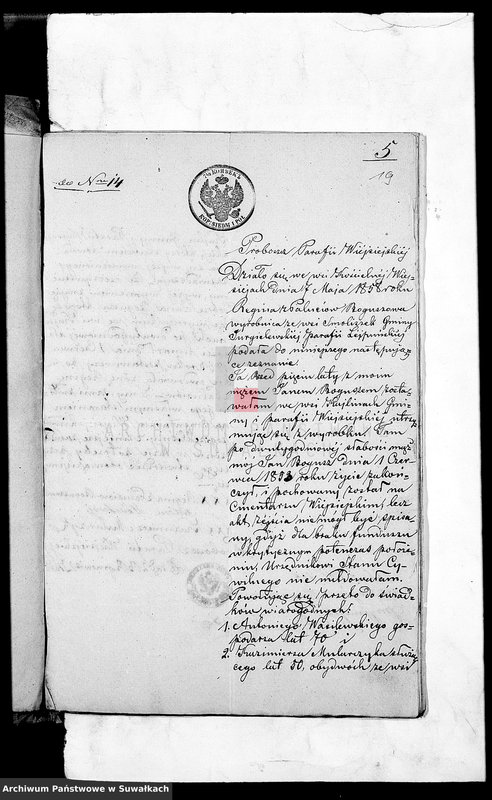 5
19
do Nru 14
Proboszcz Parafii Wiejsiejskiej
Działo się we wsi Kościelnéj Wiej-
siejach dnia 7 Maja 1858 roku
Regina z Paluciow Boguszowa
wyrobnica ze wsi Smoliszek Gminy
parafii
podała do niniejszego następują-
ce zeznanie.
Ja przed pięciu laty z moim
mężem Janem Boguszem zosta-
wałam we wsi Gmi-
ny i parafii Wiejsiejskiej utrzy-
mując się z wyrobku. Tam
po dwutygodniowéj słabości mąż
mój Jan Bogusz dnia 1 Czer-
wca 1853 roku życie zakoń-
czył, i pochowany został na
Cmentarzu Wiejsiejskim, lecz
akt zejścia niemógł być spisa-
ny, gdyż dla braku funduszu
w krytycznym potenczas położe-
niu, Urzędnikowi Stanu Cy-
wilnego nie meldowałam.
Powołując się przeto do świad-
ków wiarogodnych:
1. Antoniego Wasilewskiego gos-
podarza lat 70 i
2. Kazimierza Mularczyka służą-
cego lat 50, obydwóch ze wsi
Archiwum Państwowe w Suwałkach